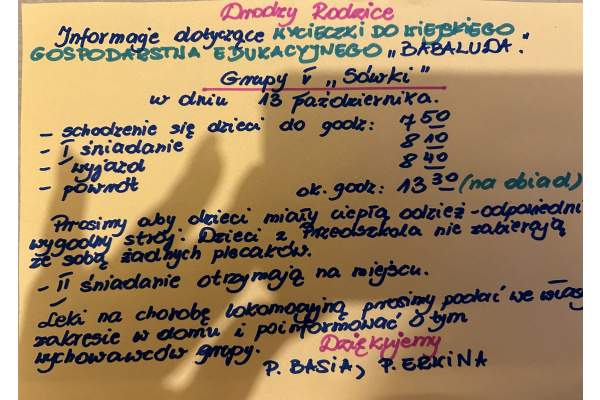 Drodzy Rodzice
Informacje dotyczące WYCIECZKI DO WIEJSKIEGO
GOSPODARSTWA EDUKACYJNEGO „BABALUDA".
Grupy V „Sówki"
w dniu 13 października.
- schodzenie się dzieci do godz: 7 50
- I śniadanie 8 10
- wyjazd 8 40
- powrót ok. godz: 13 30 (na obiad)
Prosimy aby dzieci miały ciepłą odzież - odpowiedni
wygodny strój. Dzieci z Przedszkola nie zabierają
ze sobą żadnych plecaków.
- II śniadanie otrzymają na miejscu.
- Leki na chorobę lokomocyjną prosimy podać we
zakresie w domu i poinformować o tym
wychowawców grupy.
Dziękujemy
P. BASIA, P.